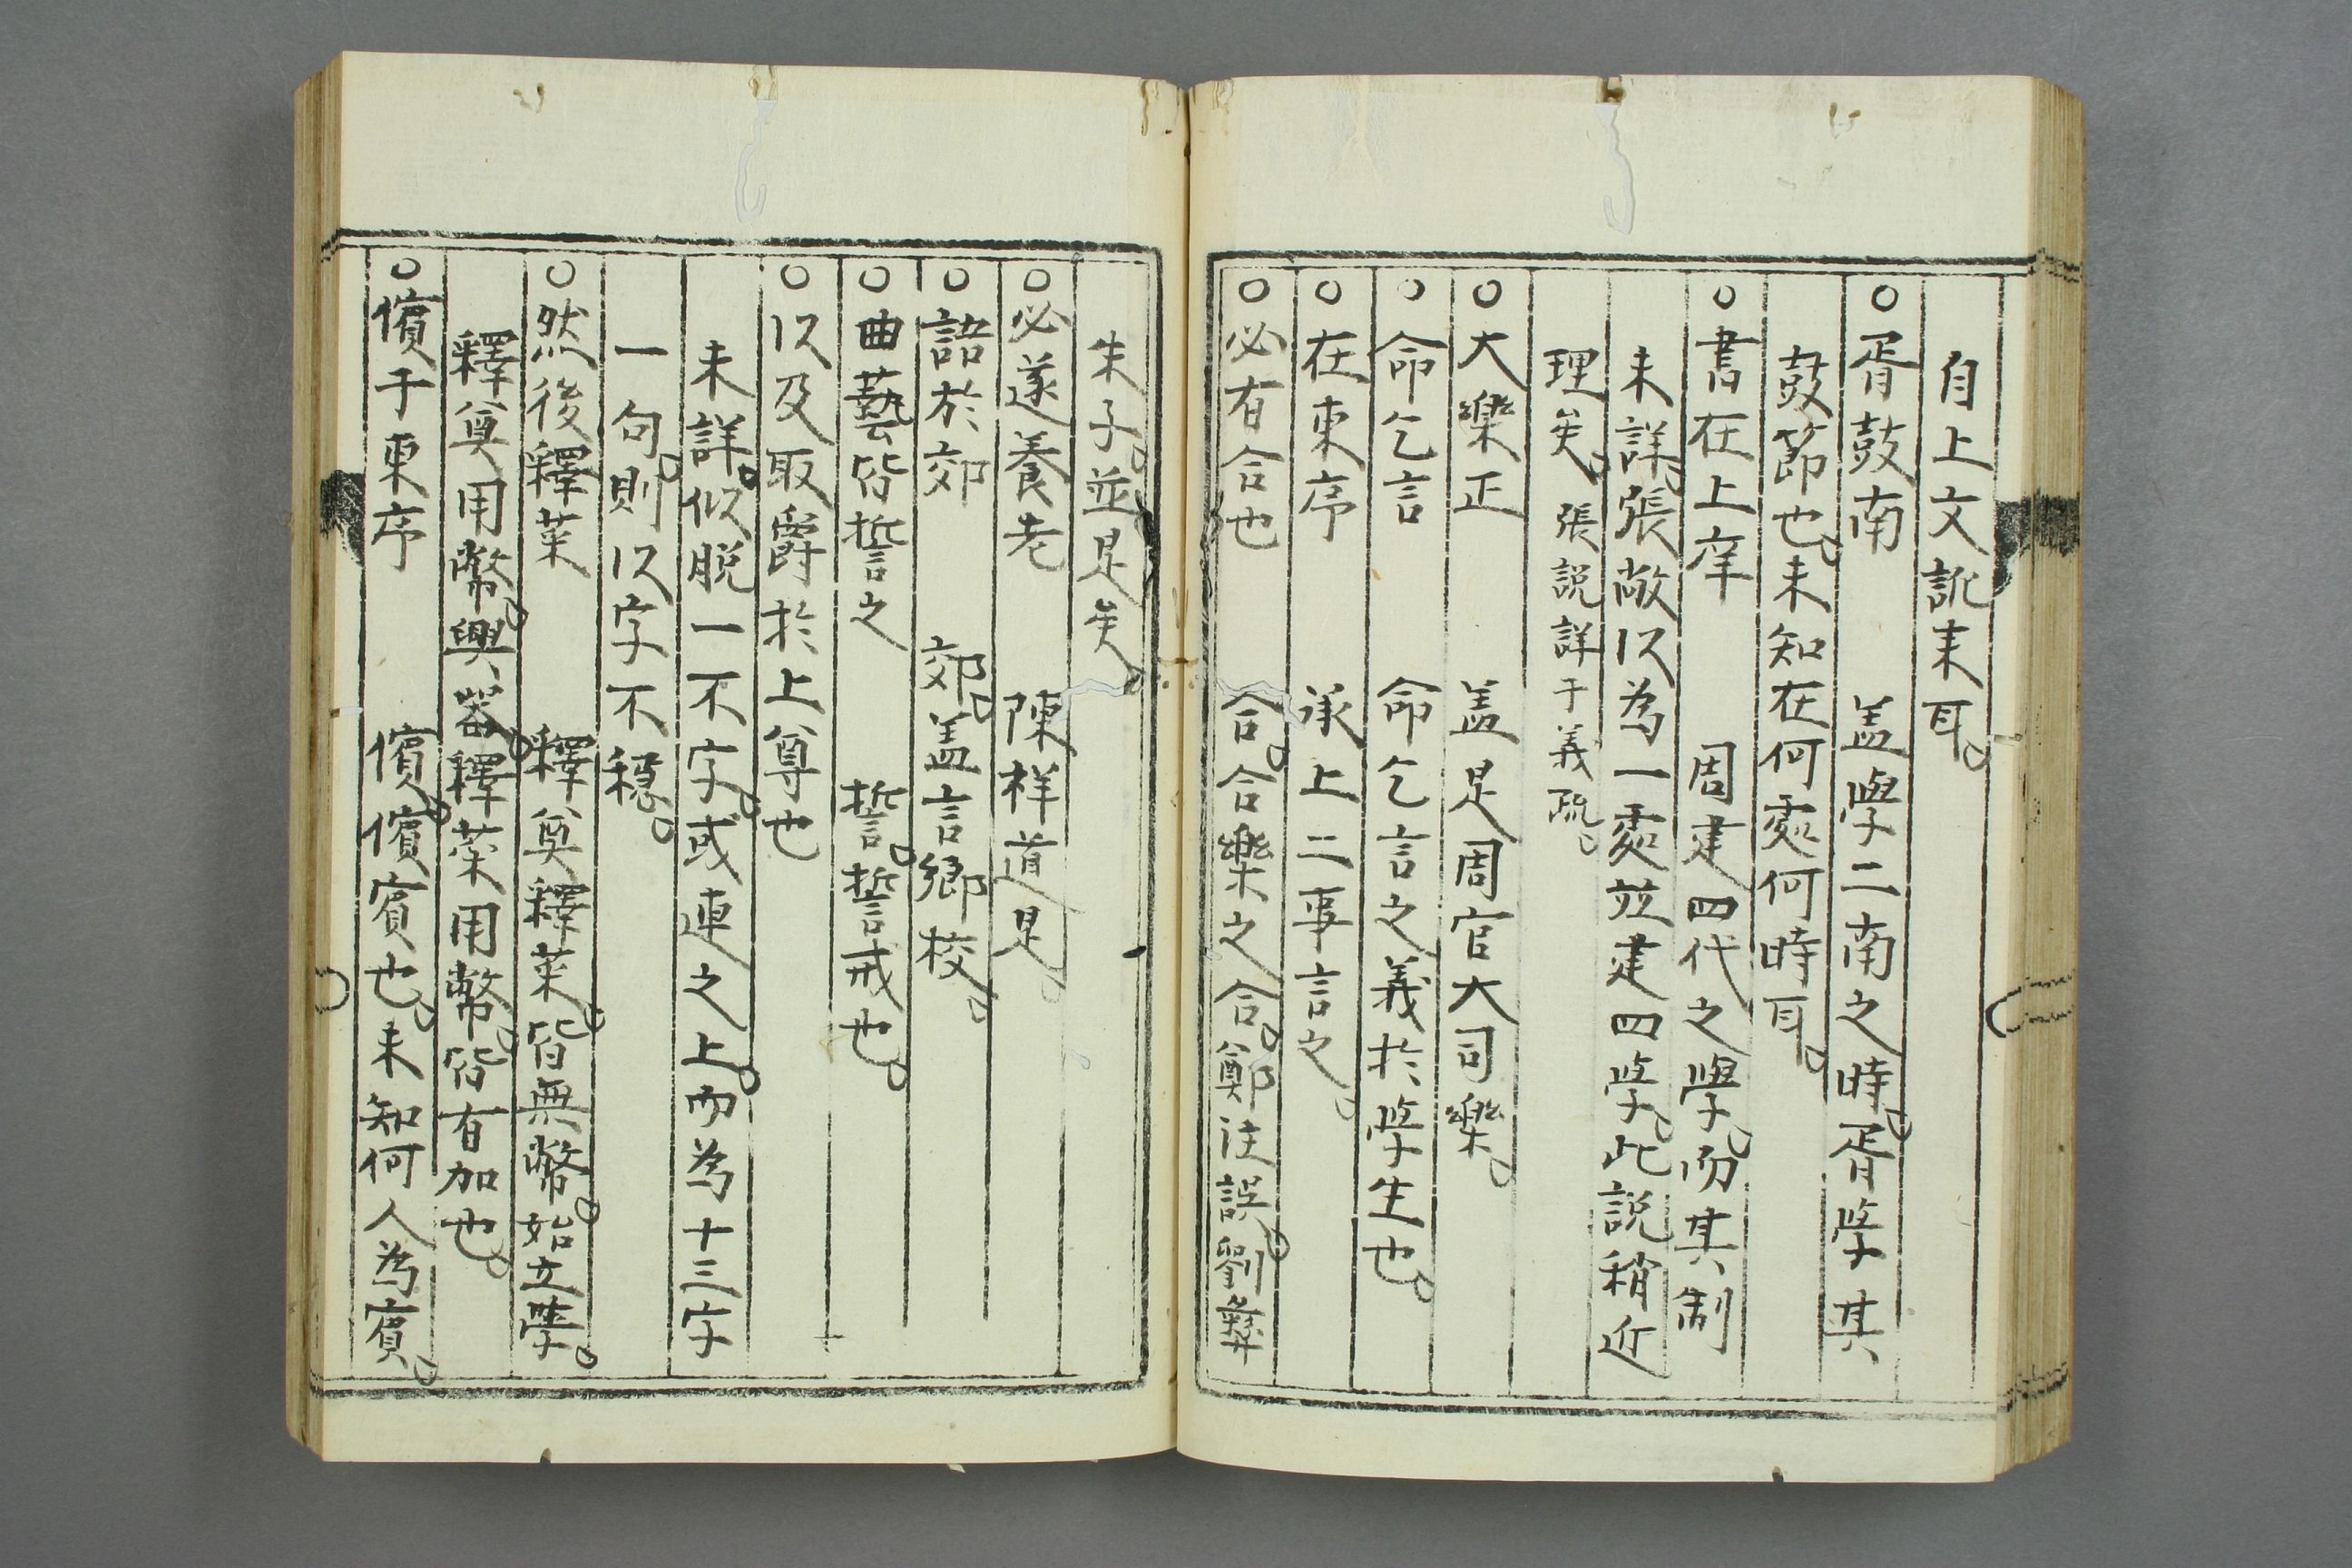 自上文訛来耳。
○胥鼓南　盖學二南之時。胥学其
鼓節也。未知在何處何時耳。
○書在上庠　周建四代之學。而其制
未詳。張敞以為一處並建四学。此説稍近
理矣。張説詳于義疏。
○大樂正　盖是周官大司樂。
○命乞言　命乞言之義於学生也。
○在東序　承上二事言之。
○必有合也　合。合樂之合。鄭注誤。劉彝
朱子。並是矣。
○必遂養老　陳祥道是。
○語於郊　郊。盖言鄉校。
○曲藝皆誓之　誓。誓戒也。
○以及取爵於上尊也
未詳。似脱一不字。或連之上。而為十三字
一句。則以字不穏。
○然後釋菜　釋奠釋菜。皆無幣。始立學。
釋奠用幣。興器。釋菜用幣。皆有加也。
○儐于東序　儐。儐賓也。未知何人為賓。